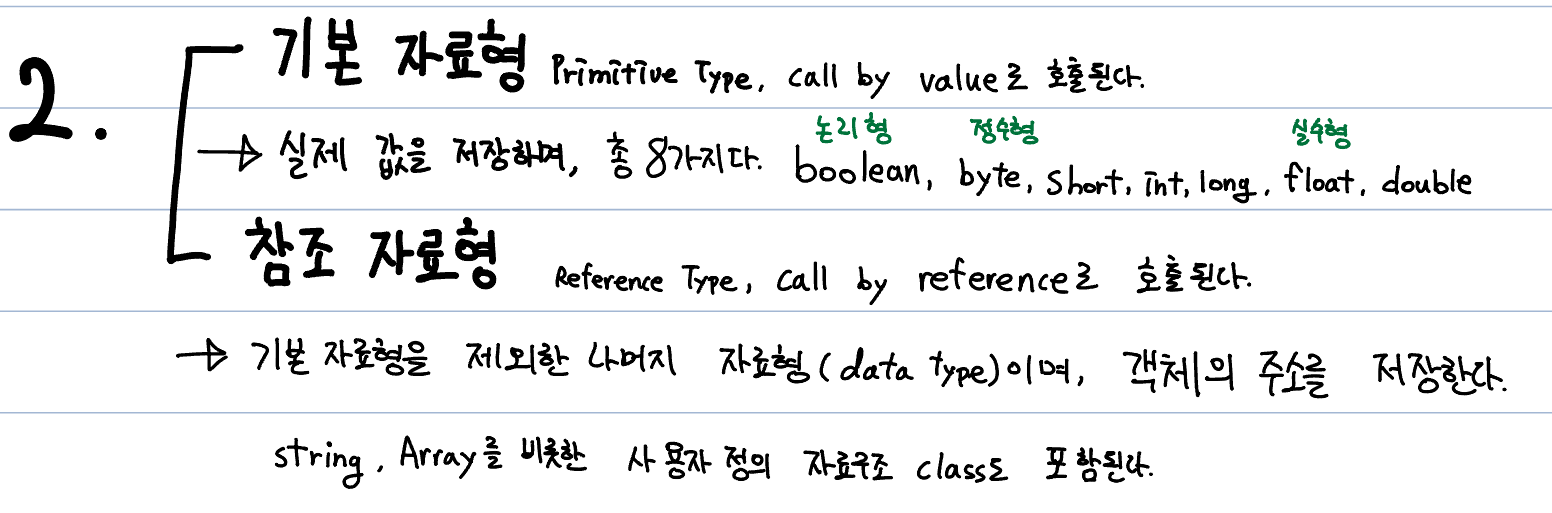 2. 기본 자료형 Primitive Type, call by value로 호출된다.
논리형 정수형 실수형
→ 실제 값을 저장하며, 총 8가지다. boolean, byte, short, int, long, float, double
참조 자료형 Reference Type, call by reference로 호출된다.
→ 기본 자료형을 제외한 나머지 자료형(data type)이며, 객체의 주소를 저장한다.
string, Array를 비롯한 사용자 정의 자료구조 class도 포함된다.